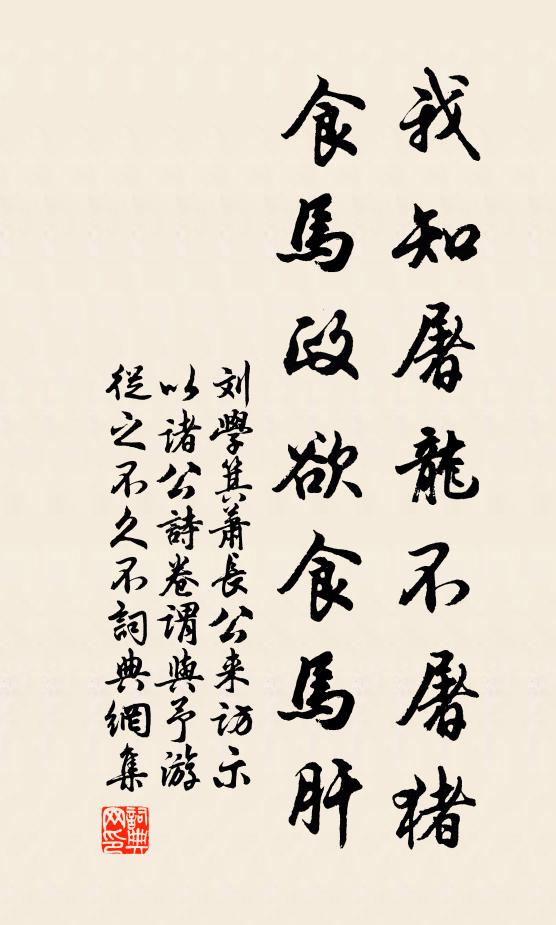 我知屠龍不屠猪
食馬政欲食馬肝
刘學箕蕭長公来访示
以诸公詩卷謂與予游
從之不久不詞典網集
詞典网印